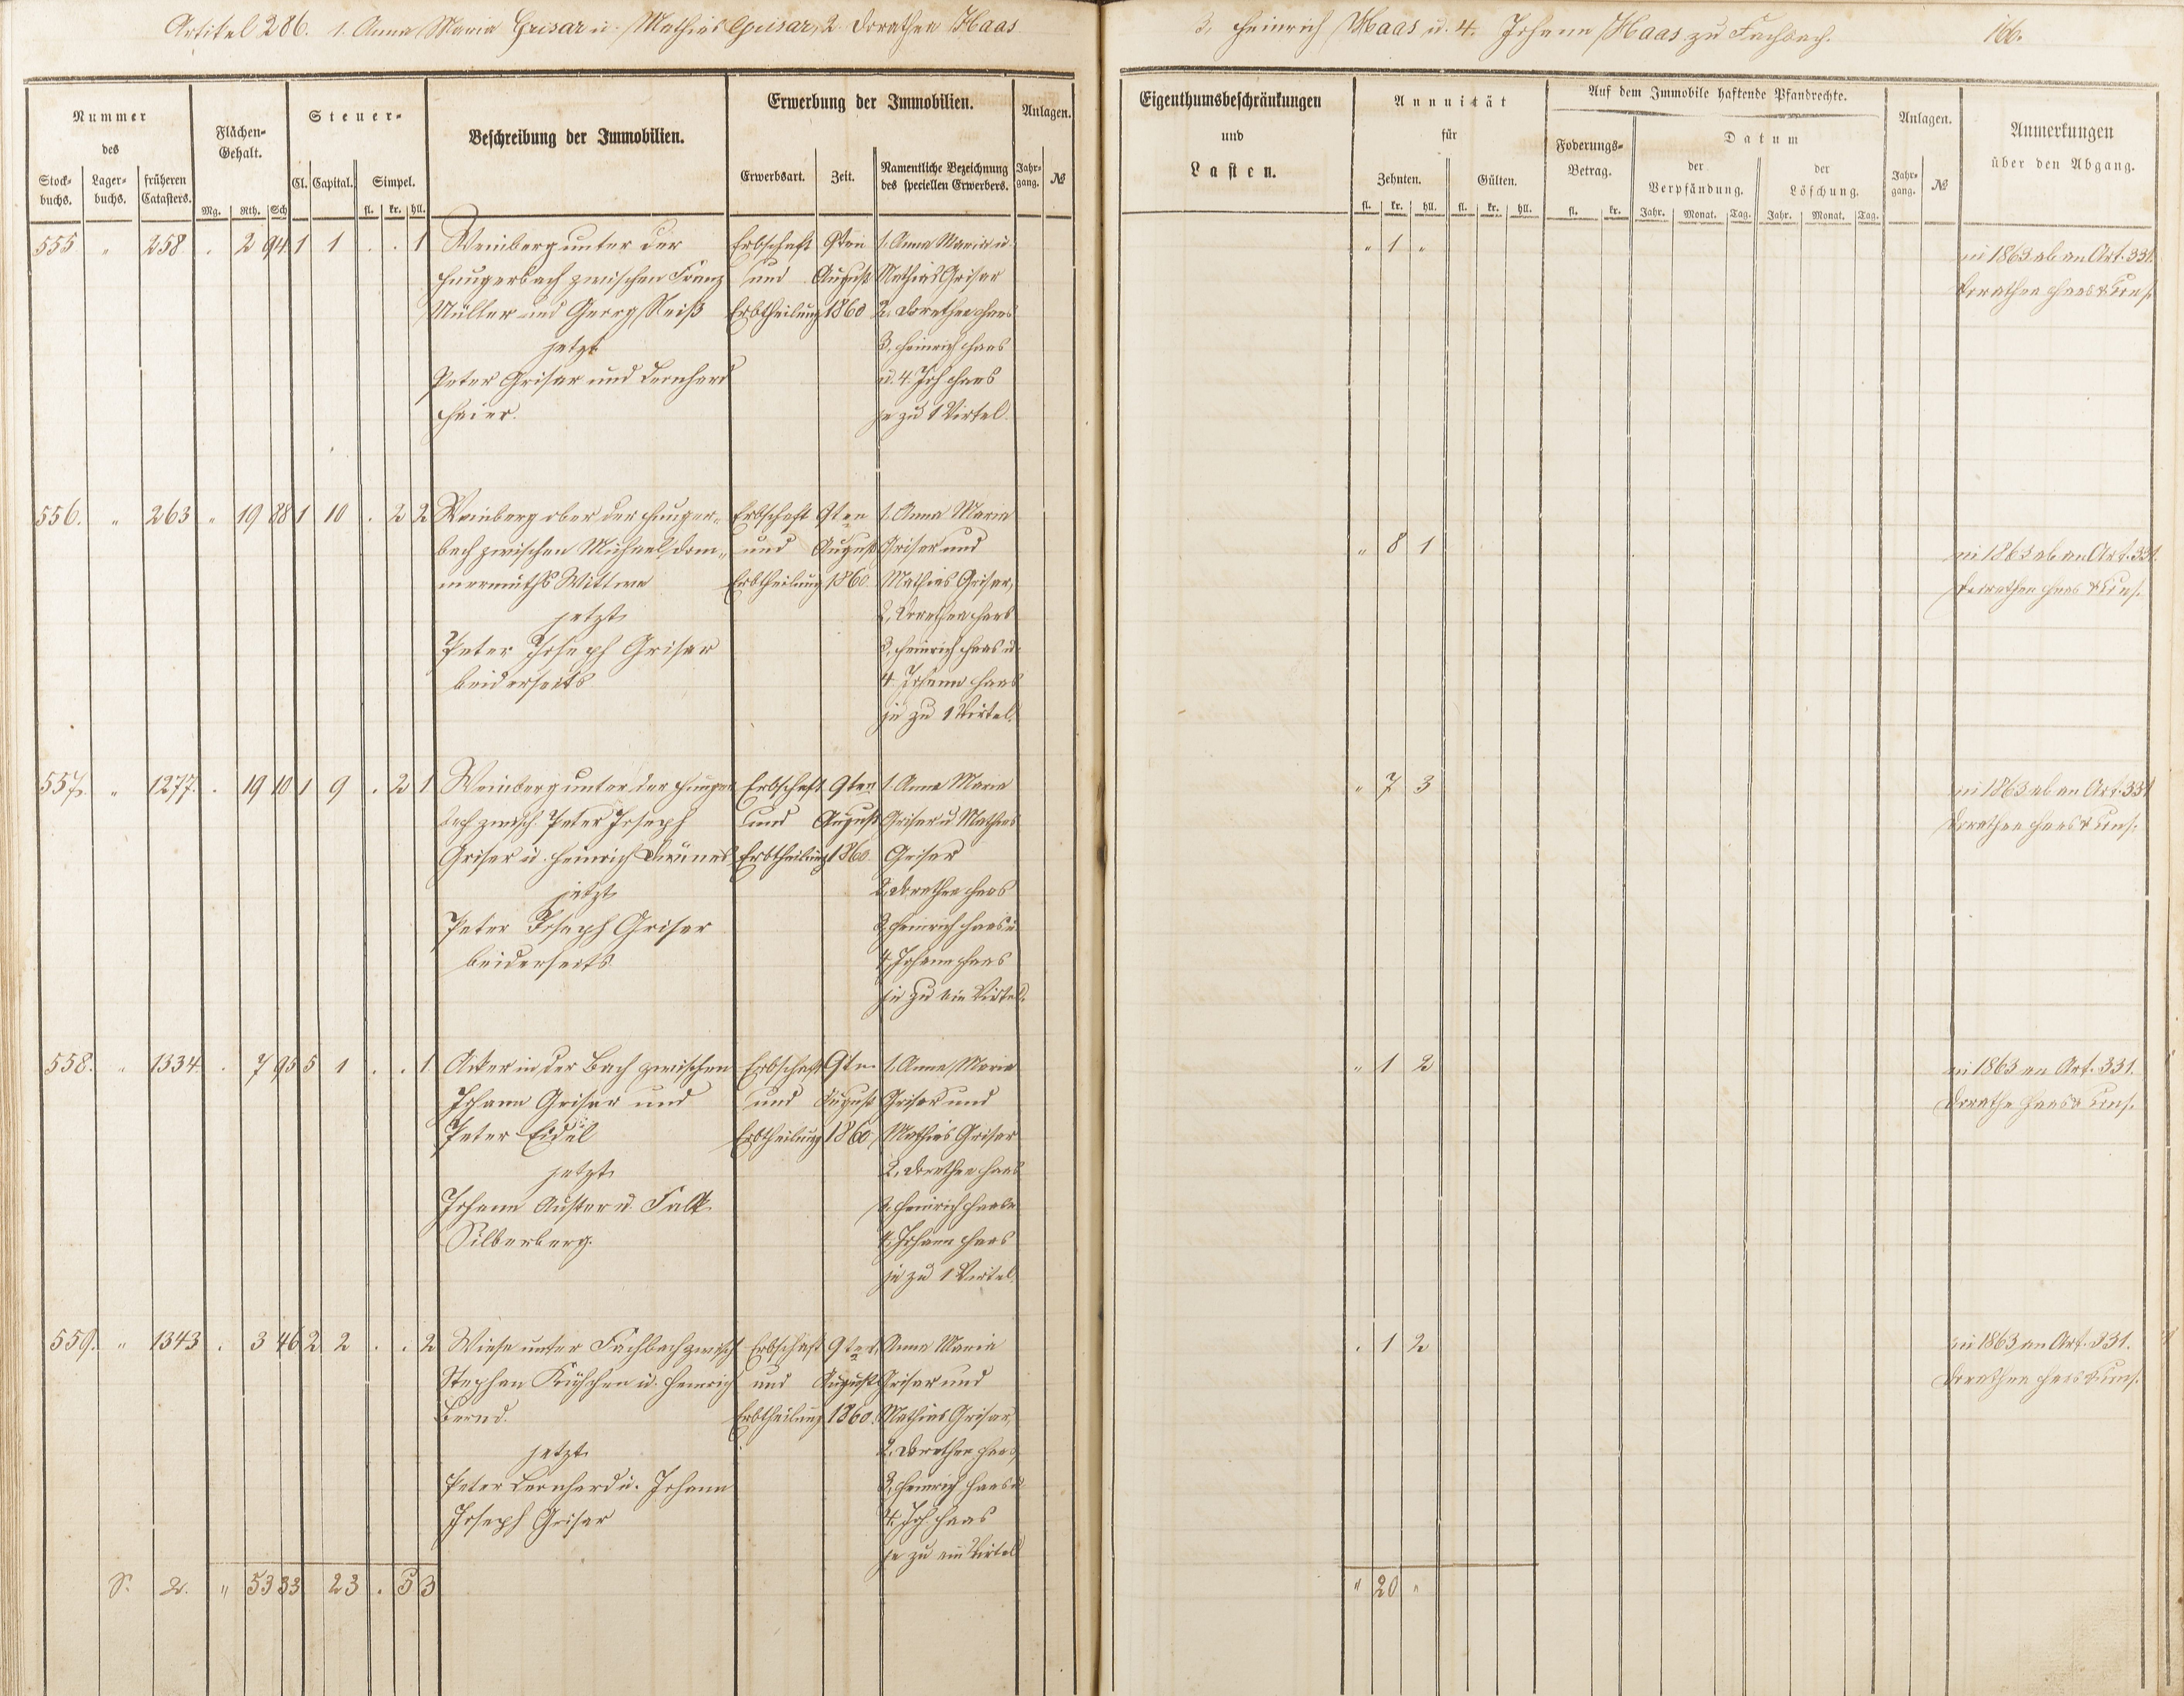 Artikel 286. 1. Anna Maria Grisar u. Mathias Grisar, 2. Dorathea Haas
3. Heinrich Haas u. 4. Johann Haas zu Fachbach.
166.
Nummer des
Stockbuchs. Lagerbuchs. früheren Catasters.
Flächen-Gehalt.
Mg. Rth. Sch
Steuer-
Cl. Capital. Simpel.
fl. kr. hll.
Beschreibung der Immobilien.
Erwerbung der Immobilien.
Erwerbsart. Zeit. Namentliche Bezeichnung des speciellen Erwerbers.
Anlagen.
Jahrgang. №
Eigenthumsbeschränkungen
und
Lasten.
Annuität
für
Zehnten. Gülten.
fl. kr. hll. fl. kr. hll.
Auf dem Immobile haftende Pfandrechte.
Foderungs-Betrag.
fl. kr.
Datum
der Verpfändung. der Löschung.
Jahr. Monat. Tag. Jahr. Monat. Tag.
Anlagen.
Jahrgang. №
Anmerkungen
über den Abgang.
555. " 258. . 2 94 1 1 . . 1 Weinberg unter der Erbschaft 9ten 1. Anna Maria u. " 1 "
zwischen Franz und August Mathias Grisar
Müller und Georg Reiß Erbtheilung 1860 2. Dorathea Haas
jetzt 3. Heinrich Haas
Peter Grisar und Bernhard u. 4. Joh Haas
je zu 1 Virtel.
in 1863 ab an Art. 331.
Dorathea Haas & Cons.
556. " 263 " 19 88 1 10 . 2 2 Weinberg ober der Erbschaft 9ten 1. Anna Maria " 8 1
bach zwischen Michael Dom- und August Grisar und
mermuths Wittwe Erbtheilung 1860. Mathias Grisar,
jetzt 2. Dorathea Haas
Peter Joseph Grisar 3. Heinrich Haas u.
beiderseits 4. Johann Haas
je zu 1 Virtel.
in 1863 ab an Art. 331.
Dorathea Haas & Cons.
557. " 1277. . 19 10 1 9 . 2 1 Weinberg unter der Erbschaft 9ten 1. Anna Maria " 7 3
bach zwisch. Peter Joseph und August Grisar u Mathias
Grisar u. Heinrich Erbtheilung 1860. Grisar
jetzt 2. Dorathea Haas
Peter Joseph Grisar 3. Heinrich Haas u.
beiderseits 4. Johann Haas
je zu ein Virtel.
in 1863 ab an Art. 331
Dorathea Haas & Cons.
558. " 1334. . 7 95 5 1 . . 1 Acker in der Bach zwischen Erbschaft 9ten 1. Anna Maria " 1 2
Johann Grisar und und August Grisar und
Peter Eidel Erbtheilung 1860. Mathias Grisar
jetzt 2. Dorathea Haas
Johann Auster u. Falk 3. Heinrich Haas u.
Silberberg. 4. Johann Haas
je zu 1 Virtel.
in 1863 an Art. 331.
Dorathe Haas & Cons.
559. " 1343 . 3 46 2 2 . . 2 Wiese unter Fachbach zwisch Erbschaft 9ten 1. Anna Maria . 1 2
Stephan u. Heinrich und August Grisar und
Bernd. Erbtheilung 1860. Mathias Grisar,
jetzt 2. Dorathea Haas
Peter Bernhard u. Johann 3. Heinrich Haas u
Joseph Grisar 4. Joh Haas
je zu ein Virtel
in 1863 an Art. 331.
Dorathea Haas & Cons.
S. " 53 33 23 . 5 3 " 20 "